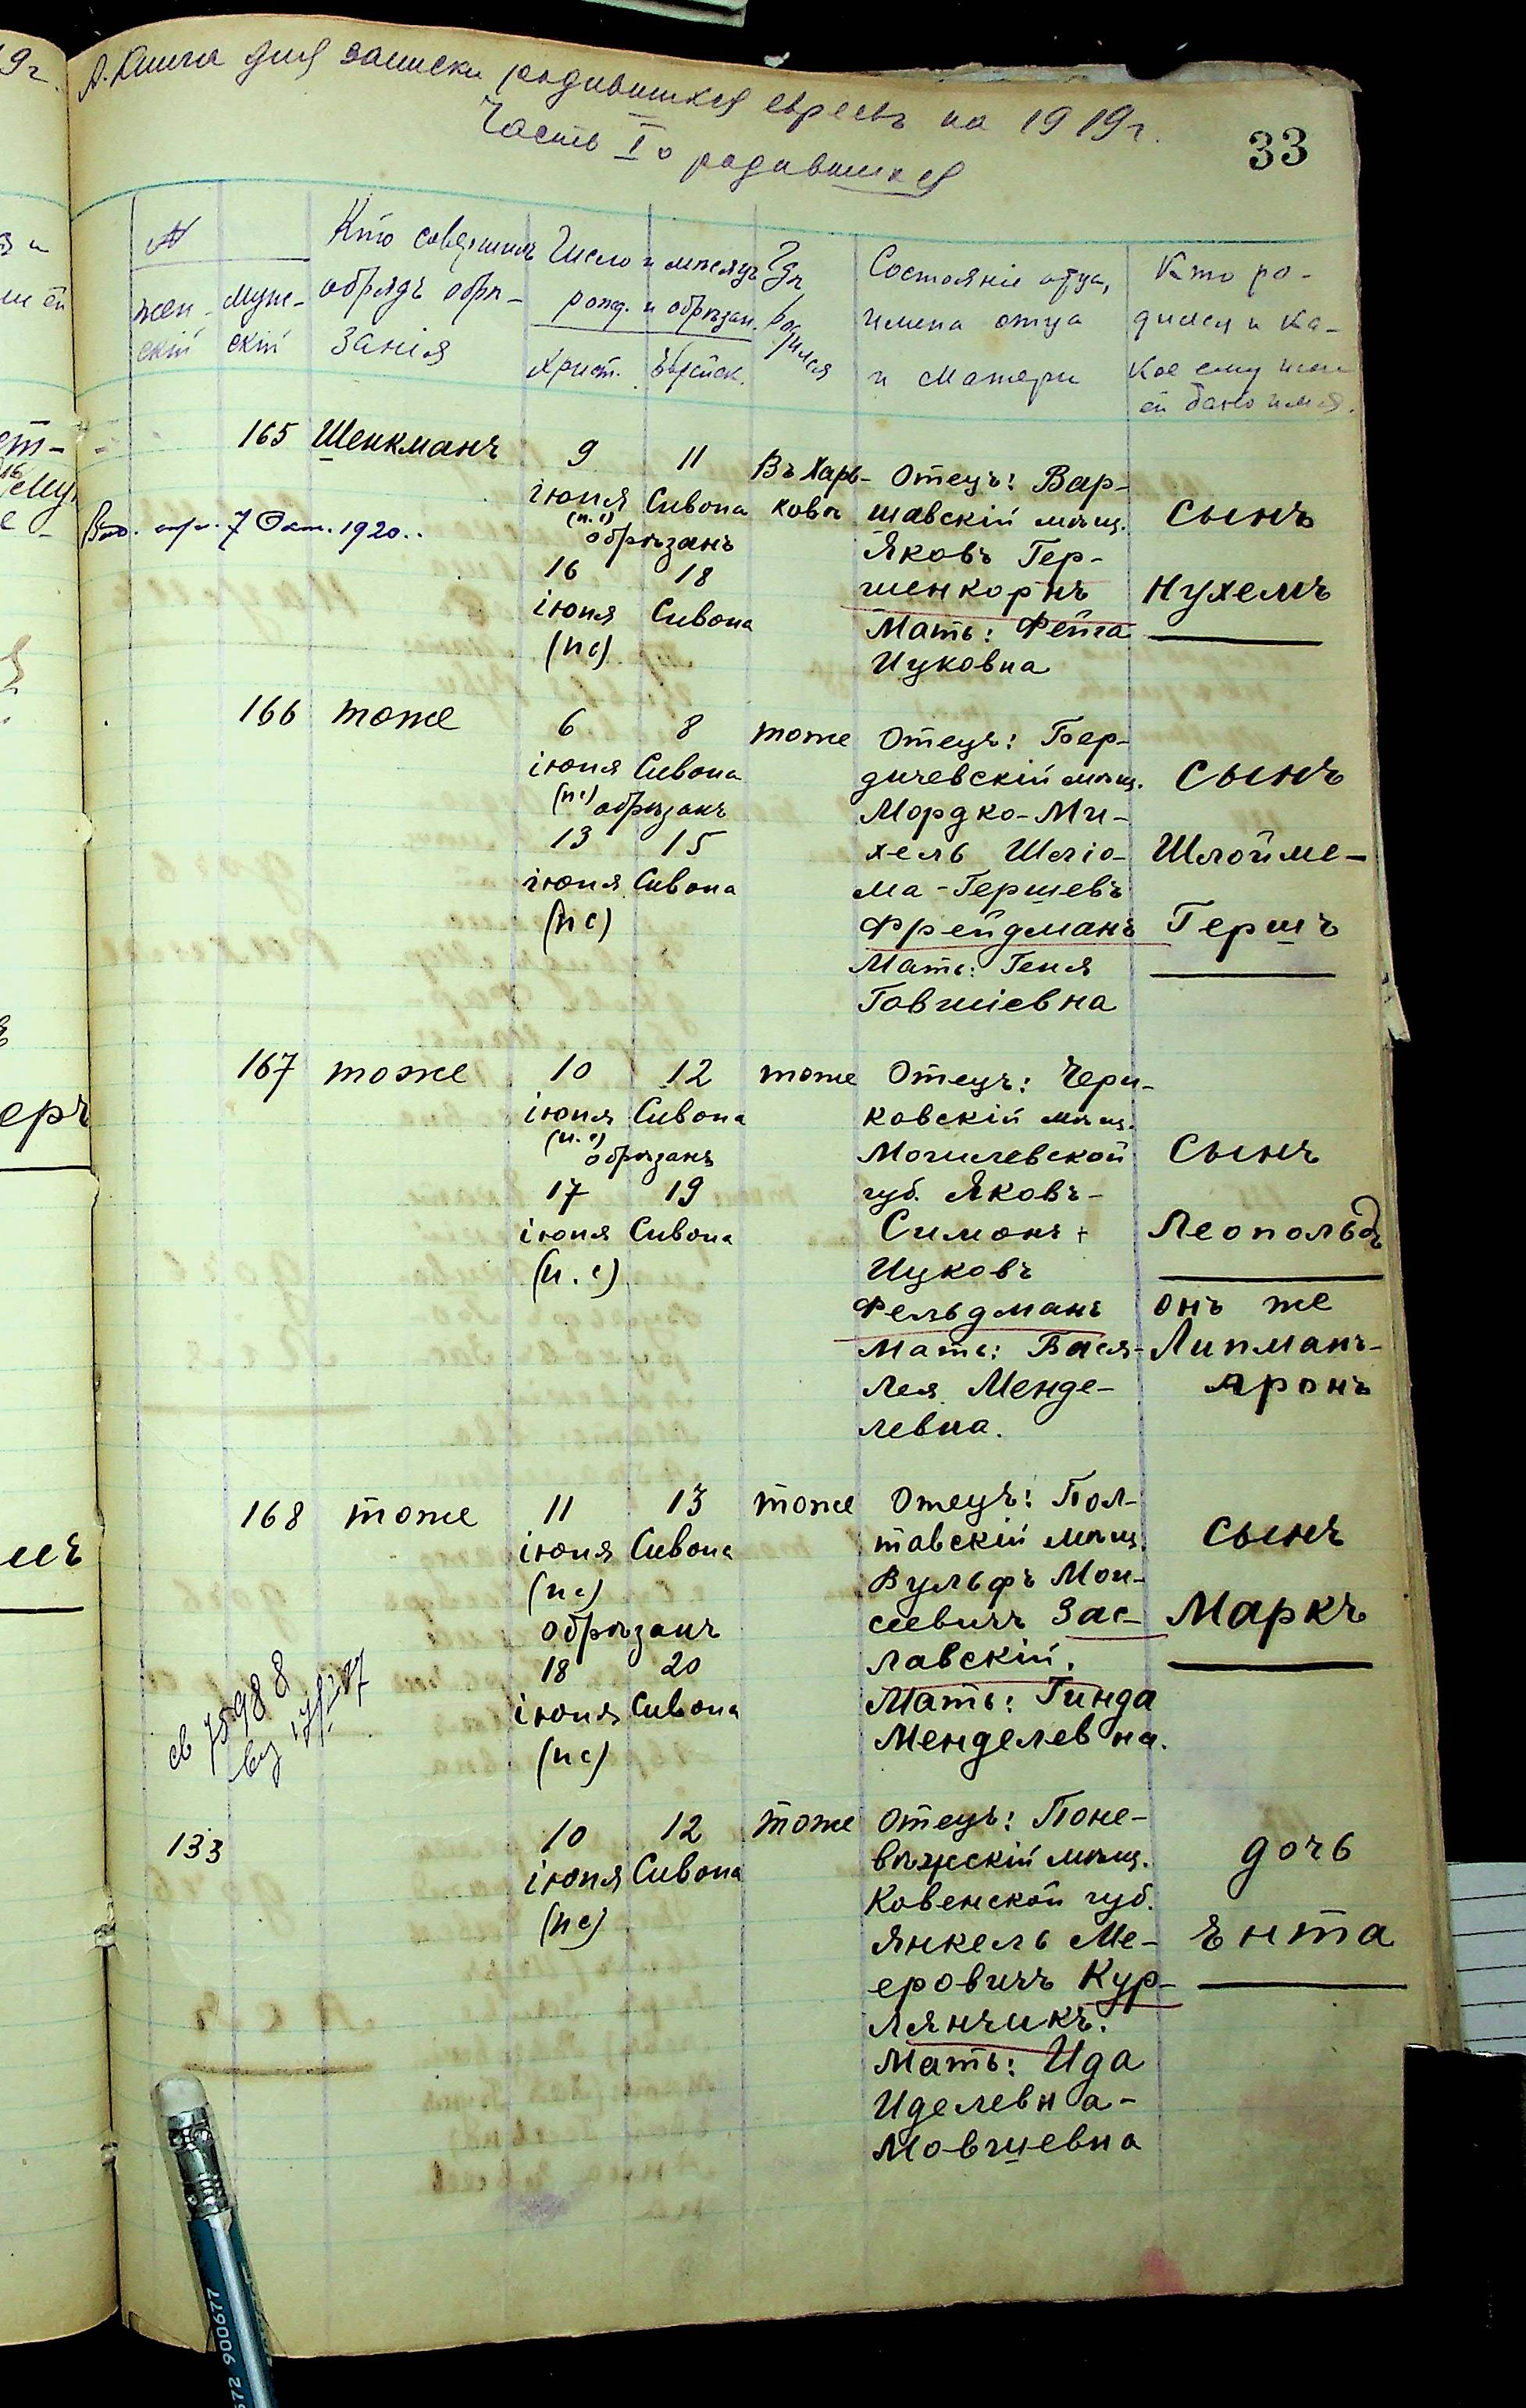 А. Книга для записки родившихся евреевъ на 1919 г.
Часть I о родившихся
33
№
жен-
скій
муж-
скій
Кто совершилъ
обрядъ обрѣ-
занія
Число и мѣсяцъ
рожд. и обрѣзан.
Христ. Еврейск.
Гдѣ
родился
Состояніе отца,
имена отца
и матери
Кто ро-
дился и ка-
кое ему или
ей дано имя.
165 Шенкманъ
9 11
іюня Сивона
(н.с)
обрѣзанъ
16 18
іюня Сивона
(нс)
Въ Харь-
ковѣ
Отецъ: Вар-
шавскій мѣщ.
Яковъ Гер-
шенкорнъ
Мать: Фейга
Ицковна
Сынъ
Нухемъ
7 Окт. 1920..
166 тоже
6 8
іюня Сивона
(нс) обрѣзанъ
13 15
іюня Сивона
(нс)
тоже
Отецъ: Бер-
дичевскій мѣщ.
Мордко-Ми-
хель Шліо-
ма-Гершевъ
Фрейдманъ
Мать: Геня
Говшіевна
Сынъ
Шлойме-
Гершъ
167 тоже
10 12
іюня Сивона
(н.с)
обрѣзанъ
17 19
іюня Сивона
(н.с)
тоже
Отецъ: Чери-
ковскій мѣщ.
Могилевской
губ. Яковъ-
Симонъ
Ицковъ
Фельдманъ
Мать: Вася-
Лея Менде-
левна.
Сынъ
Леопольдъ
онъ же
Липманъ-
Аронъ
168 тоже
11 13
іюня Сивона
(нс)
обрѣзанъ
18 20
іюня Сивона
(нс)
тоже
Отецъ: Пол-
тавскій мѣщ.
Вульфъ Мои-
сеевичъ Зас-
лавскій.
Мать: Гинда
Менделевна.
Сынъ
Маркъ
133
10 12
іюня Сивона
(нс)
тоже
Отецъ: Поне-
вѣжскій мѣщ.
Ковенской губ.
Янкель Ме-
еровичъ Кур-
лянчикъ.
Мать: Ида
Иделевна-
Мовшевна
дочь
Ента
672 900677